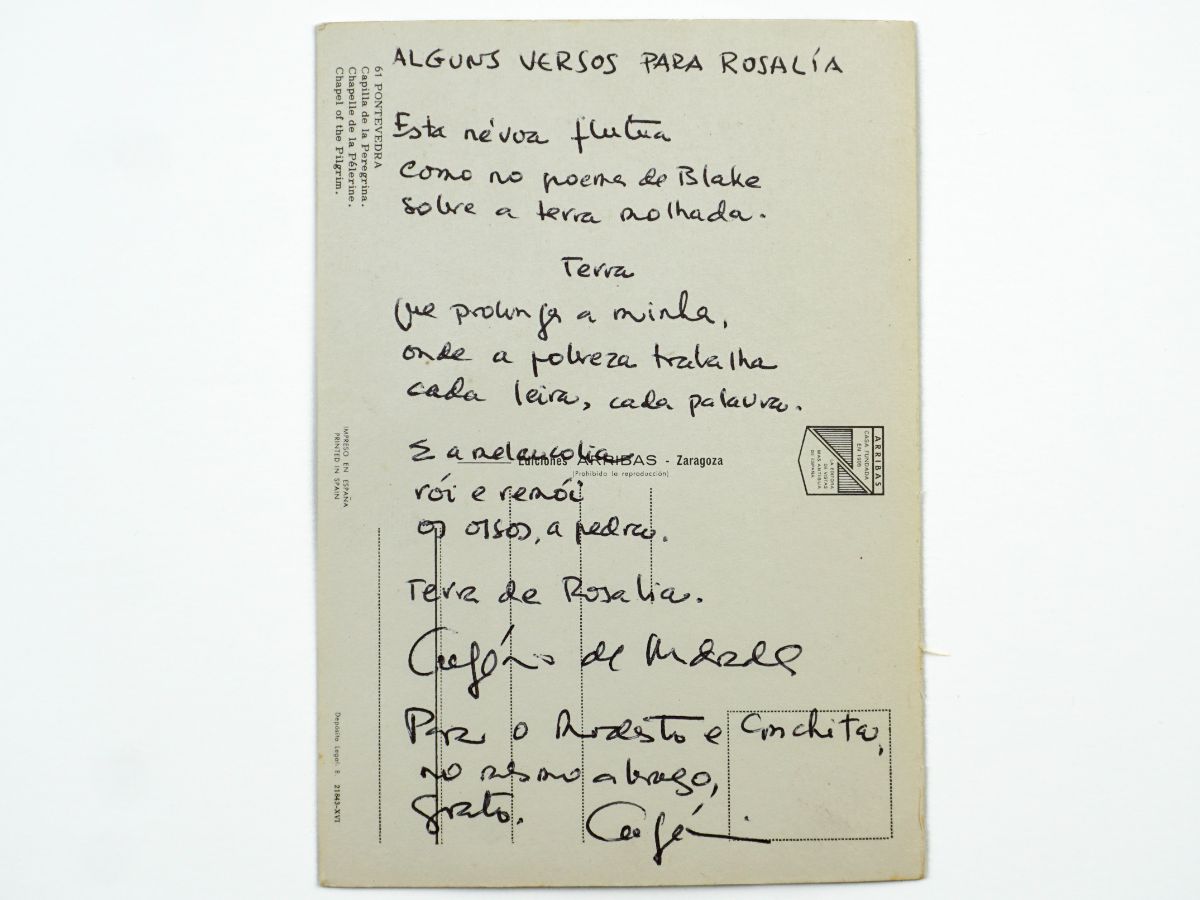 ALGUNS VERSOS PARA ROSALÍA
Esta névoa flutua
como no poema de Blake
sobre a terra molhada.
Terra
que prolonga a minha,
onde a pobreza trabalha
cada leira, cada palavra.
E a melancolia
rói e remói
os ossos, a pedra.
Terra de Rosalía.
Eugénio de Andrade
Para o Modesto e Conchita,
no mesmo abraço,
grato.
Eugénio
61 PONTEVEDRA
Capilla de la Peregrina.
Chapelle de la Pélerine.
Chapel of the Pilgrim.
IMPRESO EN ESPAÑA
PRINTED IN SPAIN
Depósito Legal: B. 21843-XVI
Ediciones ARRIBAS - Zaragoza
(Prohibida la reproducción)
ARRIBAS
CASA FUNDADA
EN 1905
LA EDITORA
DE VISTAS
MAS ANTIGUA
DE ESPAÑA